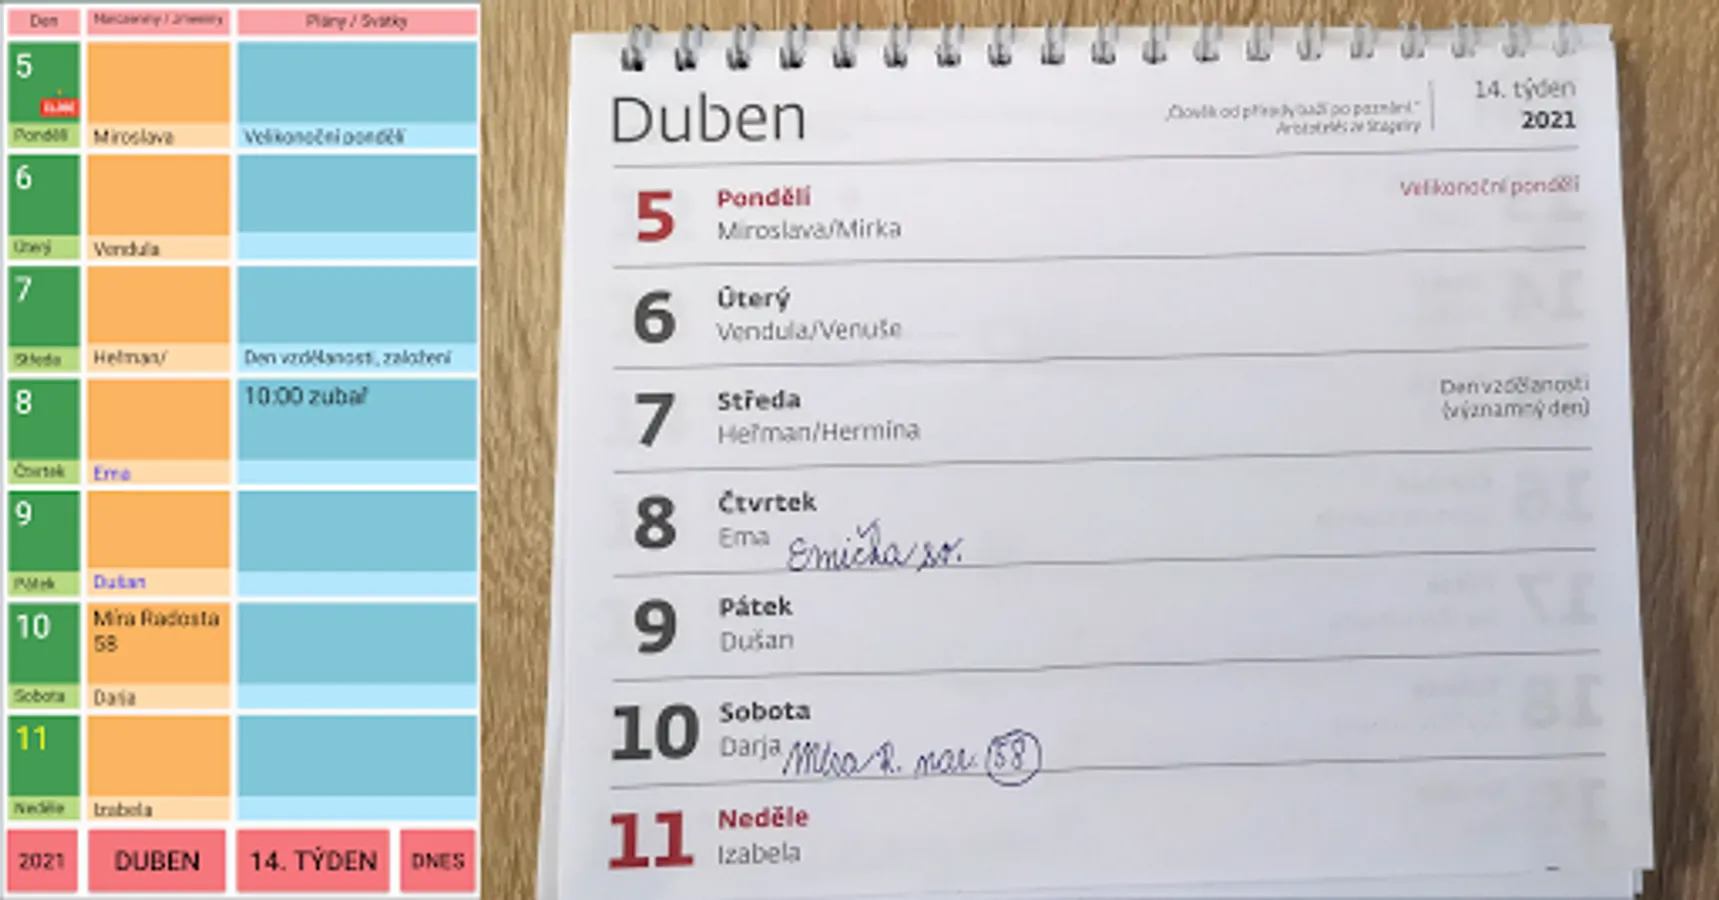 Den
Narozeniny / Jmeniny
Plány / Svátky
5
Pondělí
Miroslava
Velikonoční pondělí
6
Úterý
Vendula
7
Středa
Heřman/
Den vzdělanosti, založení
8
10:00 zubař
Čtvrtek
Ema
9
Pátek
Dušan
10
Míra Radosta
58
Sobota
Darja
11
Neděle
Izabela
2021
DUBEN
14. TÝDEN
DNES
Duben
„Člověk od přírody baží po poznání.“
Aristotelés ze Stageiry
14. týden
2021
5
Pondělí
Miroslava/Mirka
Velikonoční pondělí
6
Úterý
Vendula/Venuše
7
Středa
Heřman/Hermína
Den vzdělanosti
(významný den)
8
Čtvrtek
Ema Emička sv.
9
Pátek
Dušan
10
Sobota
Darja Míra R. nar. 58
11
Neděle
Izabela